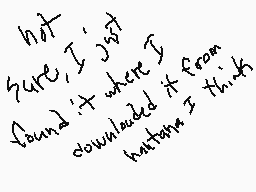 not
sure, I just
found it where I
downloaded it from
I think